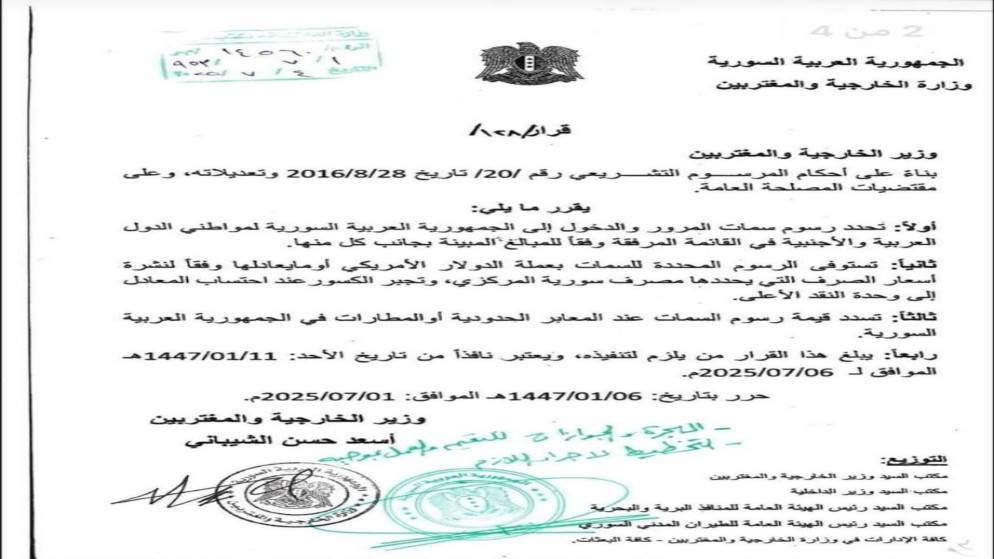 2 من 4
الجمهورية العربية السورية
وزارة الخارجية والمغتربين
قرار/١٢٨/
وزير الخارجية والمغتربين
بناءً على أحكام المرسوم التشريعي رقم /20/ تاريخ 2016/8/28 وتعديلاته، وعلى
مقتضيات المصلحة العامة.
يقرر ما يلي:
أولاً: تحدد رسوم سمات المرور والدخول إلى الجمهورية العربية السورية لمواطني الدول
العربية والأجنبية في القائمة المرفقة وفقاً للمبالغ المبينة بجانب كل منها.
ثانياً: تستوفى الرسوم المحددة للسمات بعملة الدولار الأمريكي أومايعادلها وفقاً لنشرة
أسعار الصرف التي يحددها مصرف سورية المركزي، وتجبر الكسور عند احتساب المعادل
إلى وحدة النقد الأعلى.
ثالثاً: تسدد قيمة رسوم السمات عند المعابر الحدودية أوالمطارات في الجمهورية العربية
السورية.
رابعاً: يبلغ هذا القرار من يلزم لتنفيذه، ويعتبر نافذاً من تاريخ الأحد: 1447/01/11هـ
الموافق لـ 2025/07/06م.
حرر بتاريخ: 1447/01/06هـ الموافق: 2025/07/01م.
وزير الخارجية والمغتربين
أسعد حسن الشيباني
التوزيع:
مكتب السيد وزير الخارجية والمغتربين
مكتب السيد وزير الداخلية
مكتب السيد رئيس الهيئة العامة للمنافذ البرية والبحرية
مكتب السيد رئيس الهيئة العامة للطيران المدني السوري
كافة الإدارات في وزارة الخارجية والمغتربين - كافة البعثات.